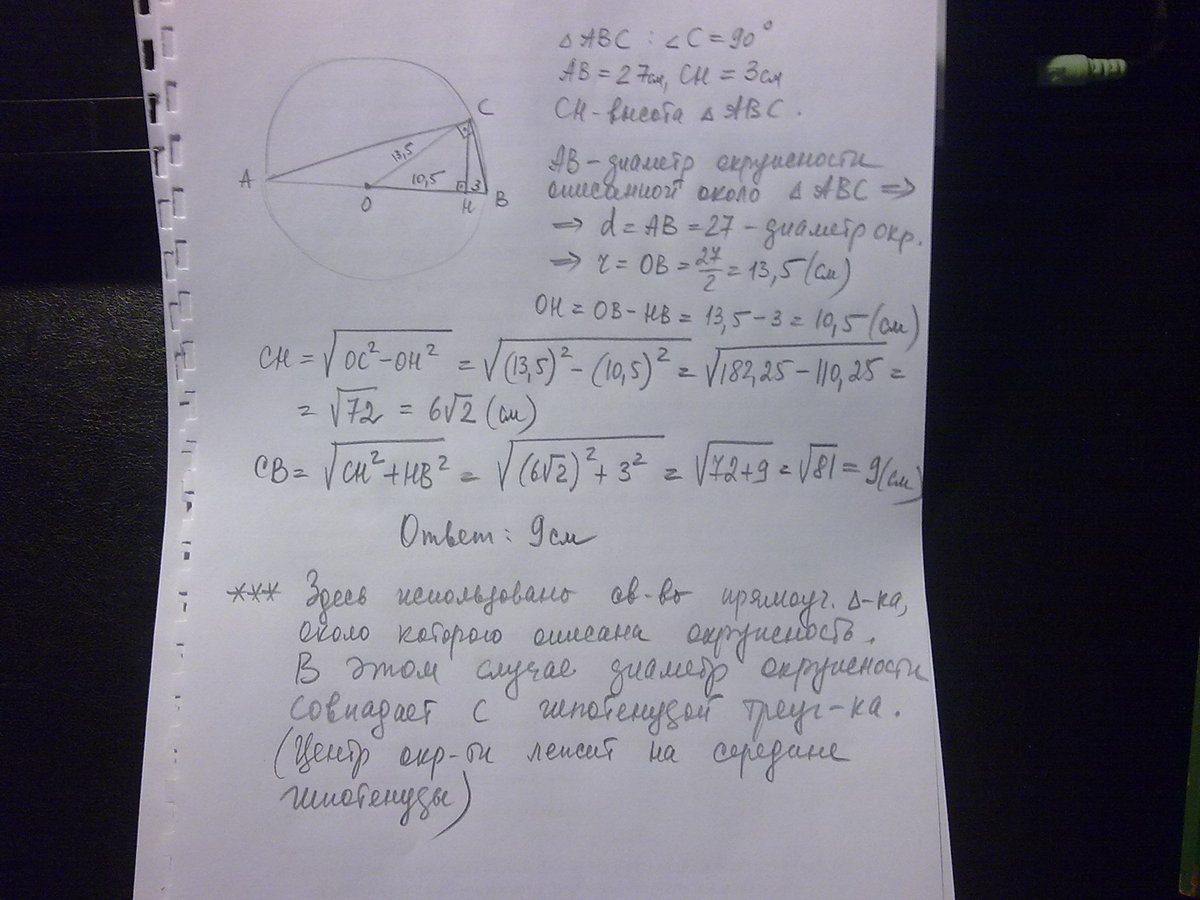 △ABC : ∠C = 90°
AB = 27см, CH = 3см
CH - высота △ABC.
AB - диаметр окружности
описанной около △ABC ⇒
⇒ d = AB = 27 - диаметр окр.
⇒ r = OB = 27/2 = 13,5 (см)
OH = OB - HB = 13,5 - 3 = 10,5 (см)
C
A
13,5
10,5
3
O
H
B
CH = √(OC² - OH²) = √((13,5)² - (10,5)²) = √(182,25 - 110,25) =
= √72 = 6√2 (см)
CB = √(CH² + HB²) = √((6√2)² + 3²) = √(72+9) = √81 = 9(см)
Ответ: 9см
*** Здесь использовано св-во прямоуг. △-ка,
около которого описана окружность.
В этом случае диаметр окружности
совпадает с гипотенузой треуг-ка.
(Центр окр-ти лежит на середине
гипотенузы)